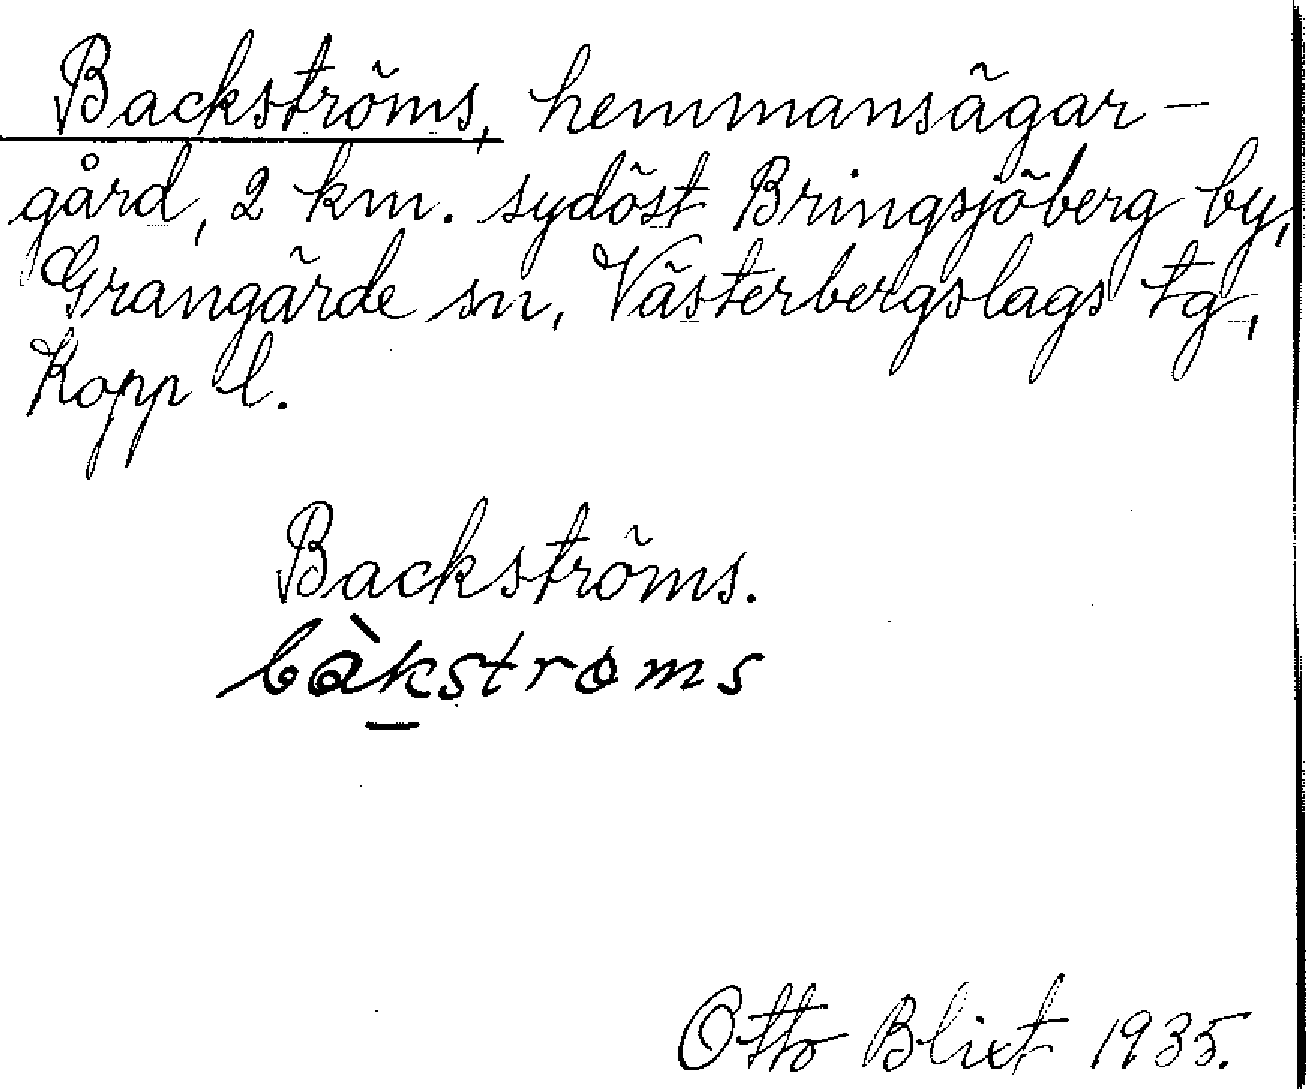 Backströms, hemmansägar-
gård, 2 km. sydöst Bringsjöberg by,
Grangärde sn, Västerbergslags tg,
Kopp l.
Backströms.
bàkstroms
Otto Blixt 1935.